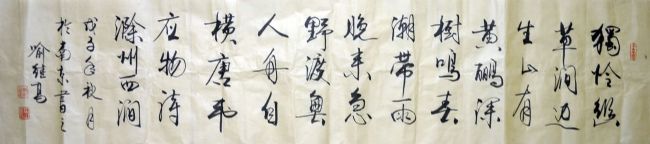 獨怜幽
草澗边
生上有
黄鹂深
樹鳴春
潮帶雨
晚来急
野渡無
人舟自
横唐韦
应物诗
滁州西涧
戊子年秋月
於南京書之
喻继高